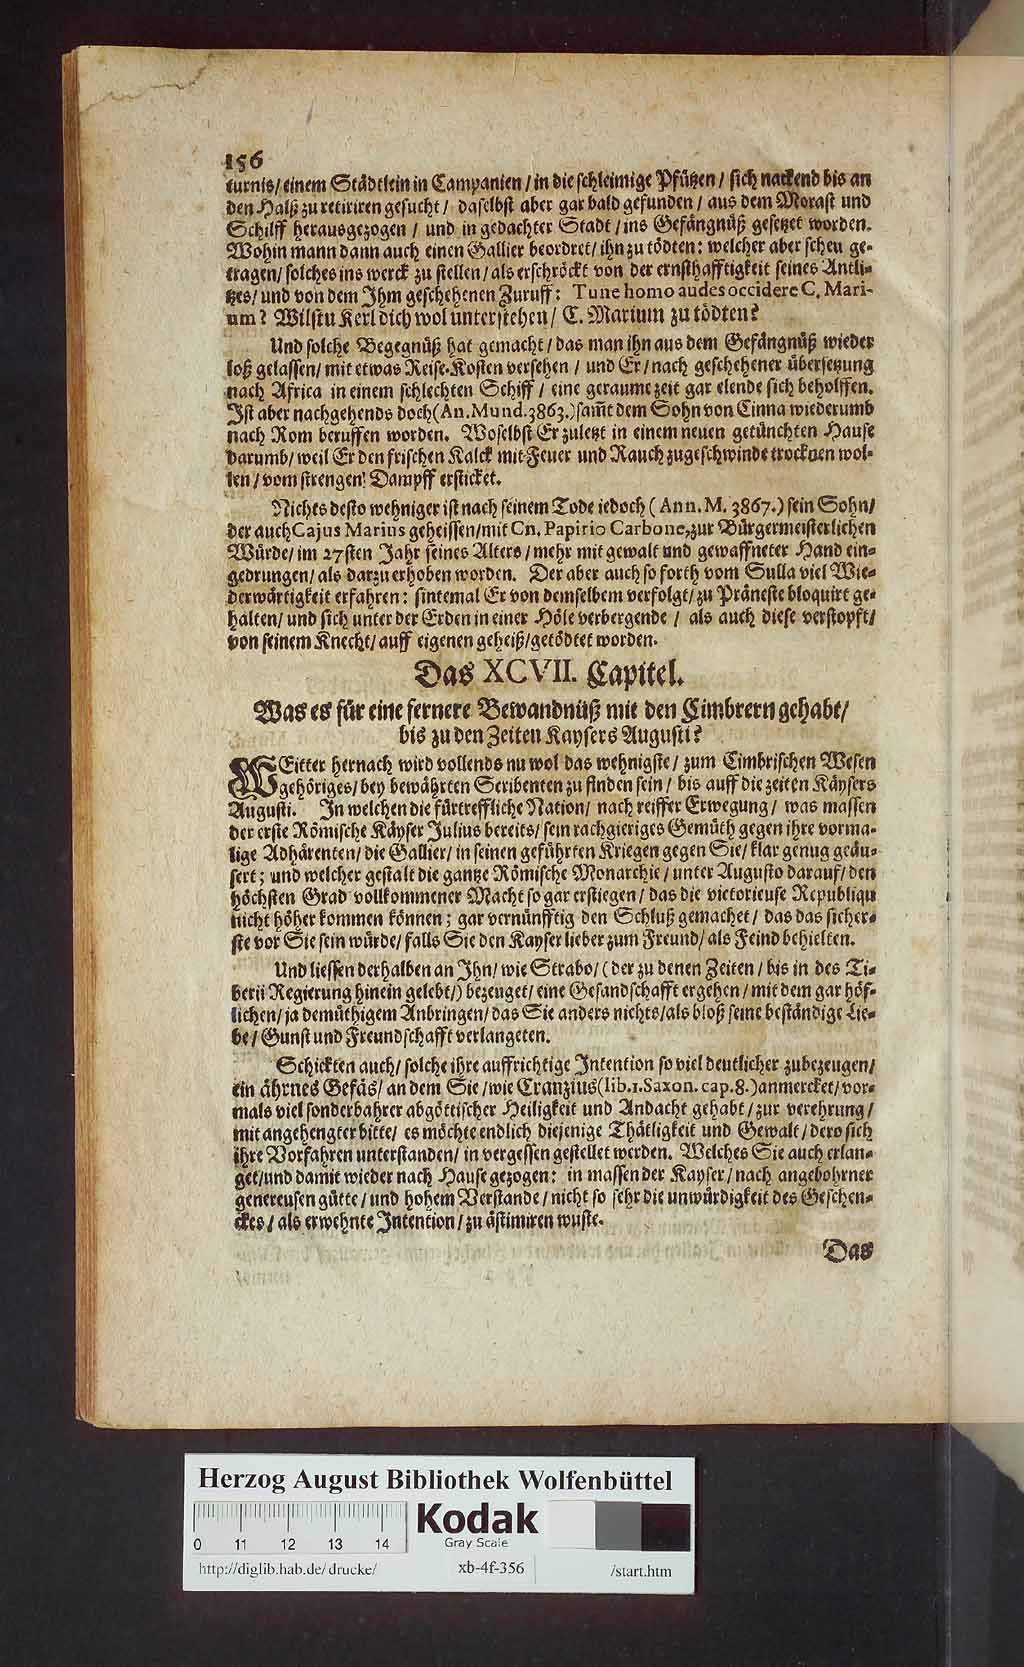 156
turnis/ einem Städtlein in Campanien / in die schleimige Pfützen / sich nackend bis an
den Halß zu retiriren gesucht / daselbst aber gar bald gefunden / aus dem Morast und
Schilff herausgezogen / und in gedachter Stadt / ins Gefängnüß gesetzet worden.
Wohin mann dann auch einen Gallier beordret / ihn zu tödten: welcher aber scheu ge-
tragen / solches ins werck zu stellen / als erschröckt von der ernsthafftigkeit seines Antli-
tzes / und von dem Ihm geschehenen Zuruff: Tune homo audes occidere C. Mari-
um? Wilstu Kerl dich wol unterstehen / C. Marium zu tödten?
Und solche Begegnüß hat gemacht / das man ihn aus dem Gefängnüß wieder
loß gelassen / mit etwas Reise-Kosten versehen / und Er / nach geschehener übersetzung
nach Africa in einem schlechten Schiff / eine geraume zeit gar elende sich beholffen.
Ist aber nachgehends doch (An. Mund. 3863.) sam̃t dem Sohn von Cinna wiederumb
nach Rom beruffen worden. Woselbst Er zuletzt in einem neuen getünchten Hause
darumb / weil Er den frischen Kalck mit Feuer und Rauch zugeschwinde trocknen wol-
len / vom strengen Dampff ersticket.
Nichts desto wehniger ist nach seinem Tode iedoch (Ann. M. 3867.) sein Sohn /
der auch Cajus Marius geheissen / mit Cn. Papirio Carbone, zur Bürgermeisterlichen
Würde / im 27sten Jahr seines Alters / mehr mit gewalt und gewaffneter Hand ein-
gedrungen / als darzu erhoben worden. Der aber auch so forth vom Sulla viel Wie-
derwärtigkeit erfahren: sintemal Er von demselbem verfolgt / zu Präneste bloquirt ge-
halten / und sich unter der Erden in einer Höle verbergende / als auch diese verstopft /
von seinem Knecht / auff eigenen geheiß / getödtet worden.
Das XCVII. Capitel.
Was es für eine fernere Bewandnüß mit den Cimbrern gehabt /
bis zu den Zeiten Kaysers Augusti?
WEitter hernach wird vollends nu wol das wehnigste / zum Cimbrischen Wesen
gehöriges / bey bewährten Scribenten zu finden sein / bis auff die zeiten Käysers
Augusti. In welchen die fürtreffliche Nation / nach reiffer Erwegung / was massen
der erste Römische Käyser Julius bereits / sein rachgieriges Gemüth gegen ihre vorma-
lige Adhärenten / die Gallier / in seinen geführten Kriegen gegen Sie / klar genug geäu-
sert; und welcher gestalt die gantze Römische Monarchie / unter Augusto darauf / den
höchsten Grad vollkommener Macht so gar erstiegen / das die victorieuse Republiqu
nicht höher kommen können; gar vernünfftig den Schluß gemachet / das das sicher-
ste vor Sie sein würde / falls Sie den Kayser lieber zum Freund / als Feind behielten.
Und liessen derhalben an Ihn / wie Strabo / (der zu denen Zeiten / bis in des Ti-
berii Regierung hinein gelebt /) bezeuget / eine Gesandschafft ergehen / mit dem gar höf-
lichen / ja demüthigem Anbringen / das Sie anders nichts / als bloß seine beständige Lie-
be / Gunst und Freundschafft verlangeten.
Schickten auch / solche ihre auffrichtige Intention so viel deutlicher zubezeugen /
ein ährnes Gefäs / an dem Sie / wie Cranzius (lib. 1. Saxon. cap. 8.) anmercket / vor-
mals viel sonderbahrer abgöttischer Heiligkeit und Andacht gehabt / zur verehrung /
mit angehengter bitte / es möchte endlich diejenige Thätligkeit und Gewalt / dero sich
ihre Vorfahren unterstanden / in vergessen gestellet werden. Welches Sie auch erlan-
get / und damit wieder nach Hause gezogen: in massen der Kayser / nach angebohrner
genereusen gütte / und hohem Verstande / nicht so sehr die unwürdigkeit des Geschen-
ckes / als erwehnte Intention / zu ästimiren wuste.
Das
Herzog August Bibliothek Wolfenbüttel
Kodak
Gray Scale
0 11 12 13 14
http://diglib.hab.de/drucke/ xb-4f-356 /start.htm